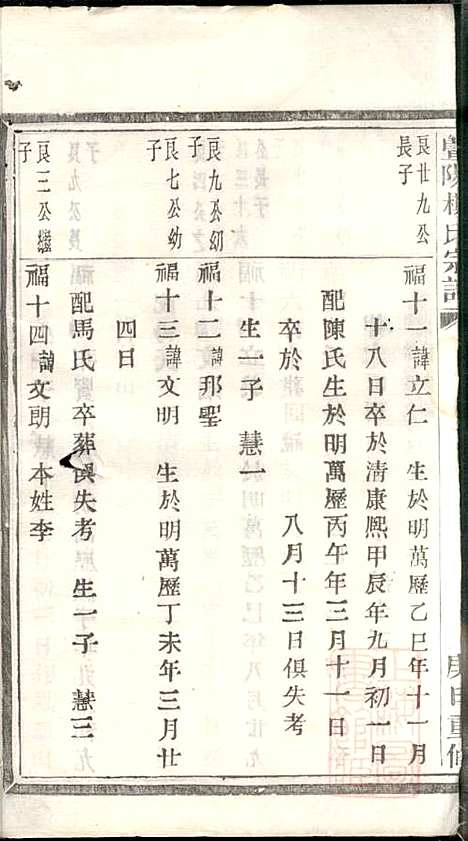 暨陽楊氏宗譜
庚申重修
良廿九公
長子
福十一諱立仁 生於明萬曆乙巳年十一月
十八日卒於清康熙甲辰年九月初一日
配陳氏生於明萬歷丙午年三月十一日
卒於 八月十三日俱失考
生一子 慧一
良九公幼
子
福十二諱邦聖
良七公幼
子
福十三諱文明 生於明萬歷丁未年三月廿
四日
配馬氏 卒葬俱失考 生一子 慧三
良三公繼
子
福十四諱文朗 本姓李